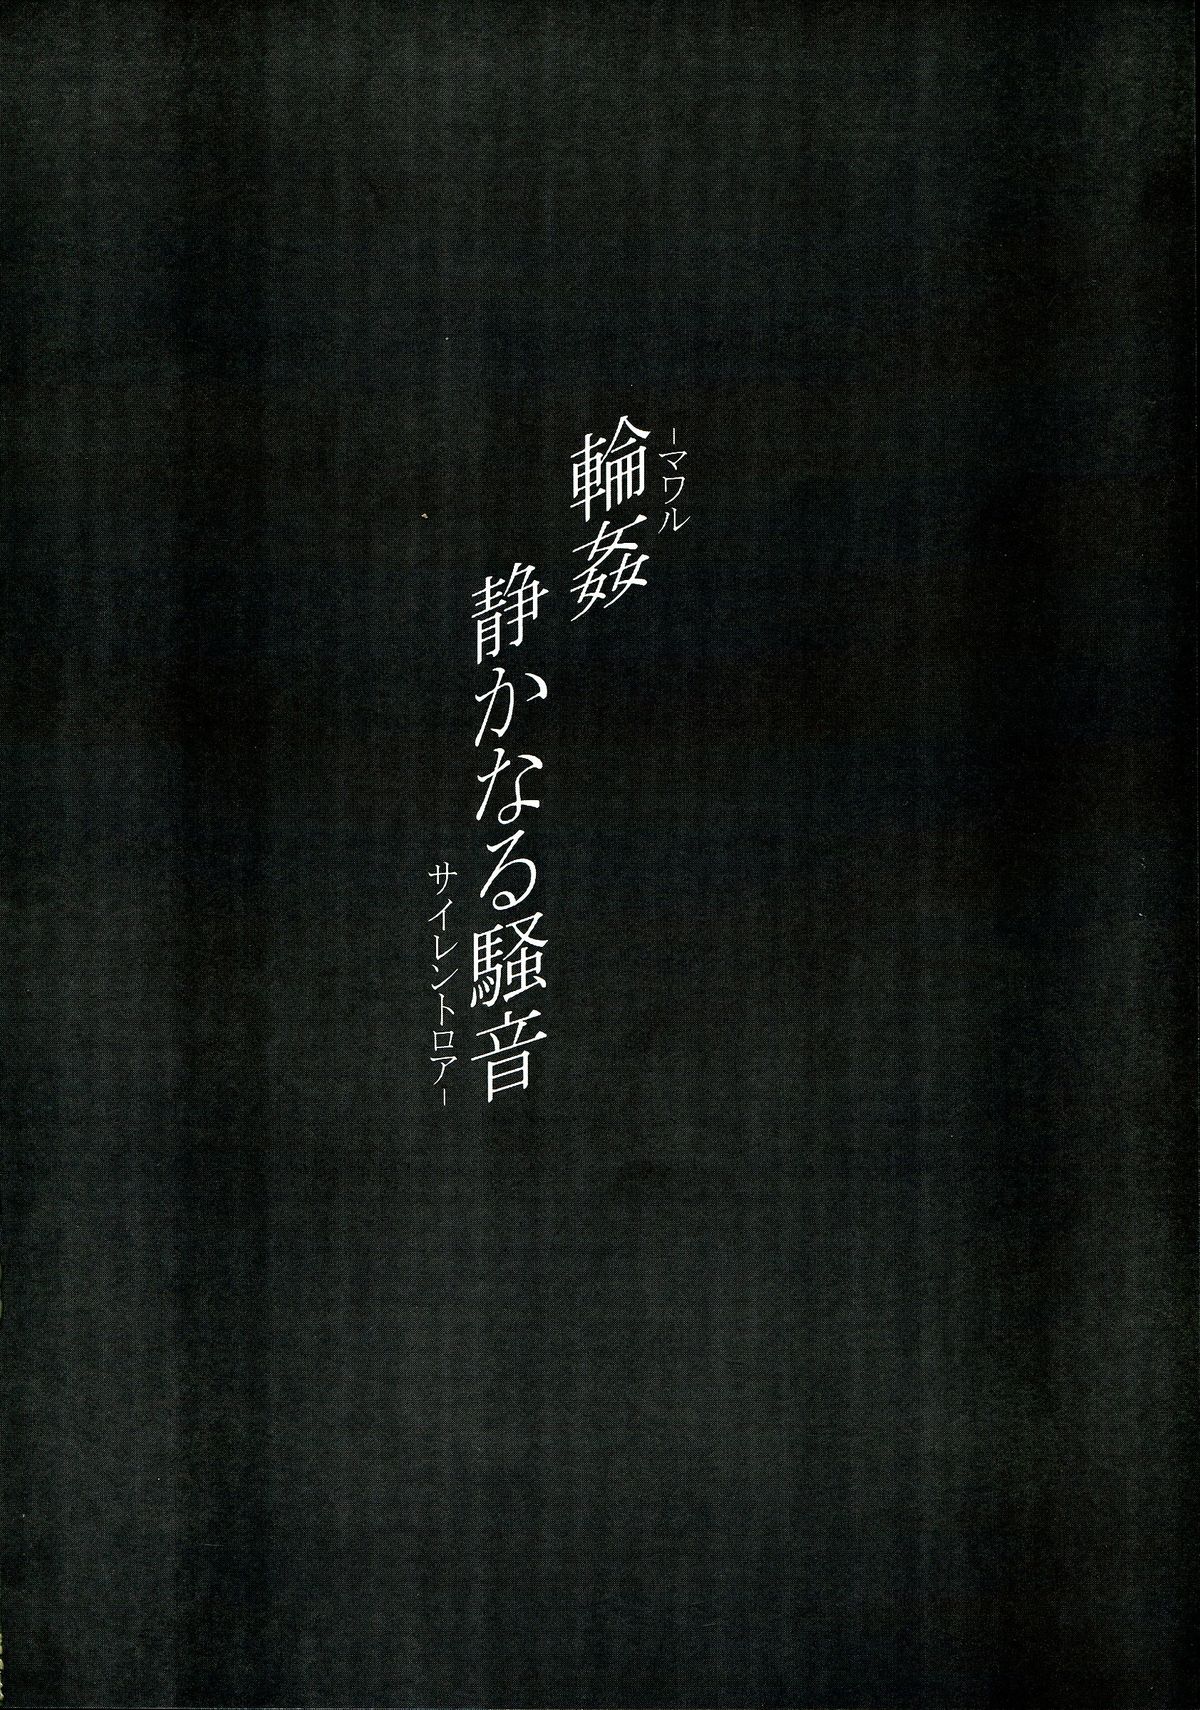 -マワル
輪姦
静かなる騒音
サイレントロアー